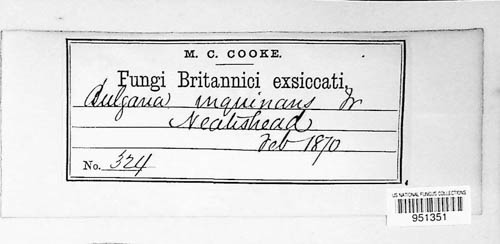 M. C. COOKE.
Fungi Britannici exsiccati,
Bulgaria inquinans Fr
Neatishead
Feb 1870
No. 324
US NATIONAL FUNGUS COLLECTIONS
951351